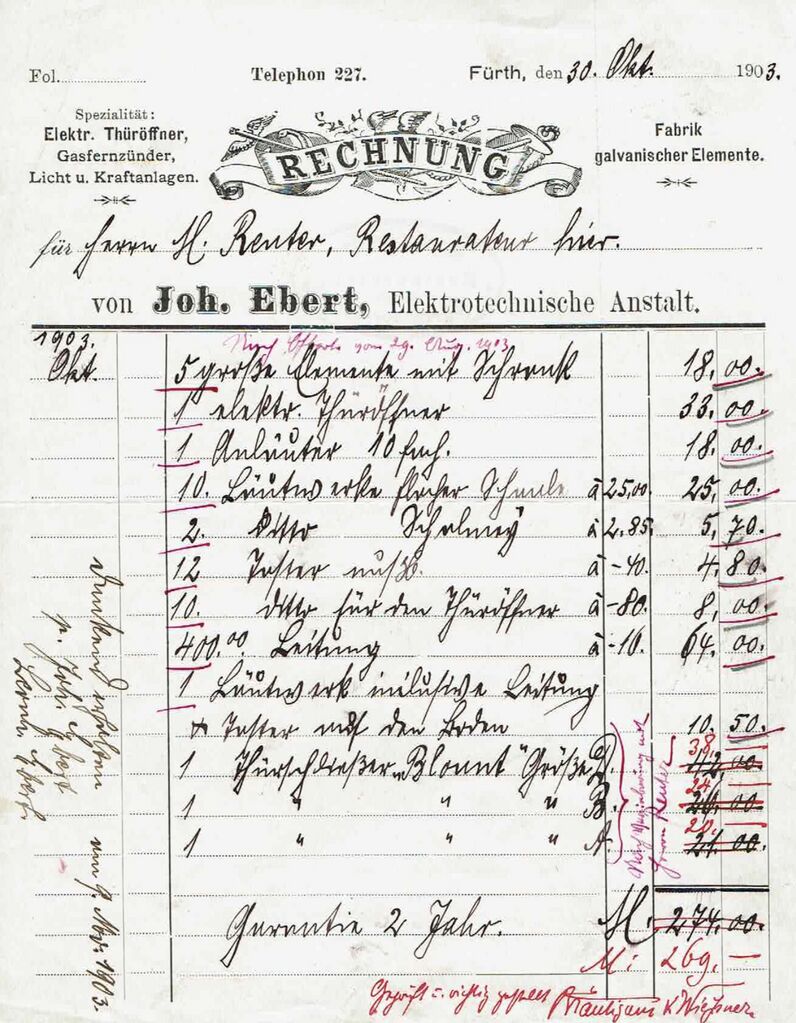 Fol. Telephon 227. Fürth, den 30. Okt. 1903.
Spezialität:
Elektr. Thüröffner,
Gasfernzünder,
Licht u. Kraftanlagen.
RECHNUNG
Fabrik
galvanischer Elemente.
für Herrn H. Reuter, Restaurateur hier.
von Joh. Ebert, Elektrotechnische Anstalt.
1903.
Nach Offerte vom 29. Aug. 1903
Okt. 5 große Elemente mit Schrank 18,00.
1 elektr. Thüröffner 33.00.
1 Anläuter 10 fach. 18.00.
10. Läutwerke flacher Schaale à 25,00. 25,00.
2. ditto Schalmey à 2,85. 5,70.
12 Taster à -40. 4,80.
10. ditto für den Thüröffner à -80. 8,00.
400.00 Leitung à -16. 64.00.
1 Läutwerk inclusive Leitung
& Taster auf den Boden 10.50.
1 Thürschließer "Blount" Größe D. 42,00. 38.
1 " " " B. 26.00. 24.
1 " " " A. 21.00. 20.
Nach Vereinbarung mit
Herrn Reuter
Garantie 2 Jahr. M: 274.00.
M: 269.—
Geprüft u. richtig gestellt
dankend erhalten am 9. Nov. 1903.
p. Joh. Ebert
Ebert